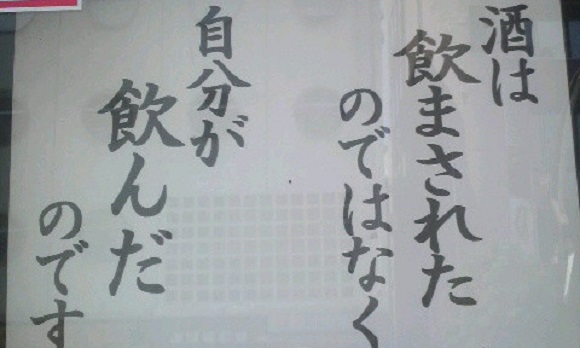 酒は
飲まされた
のではなく
自分が
飲んだ
のです